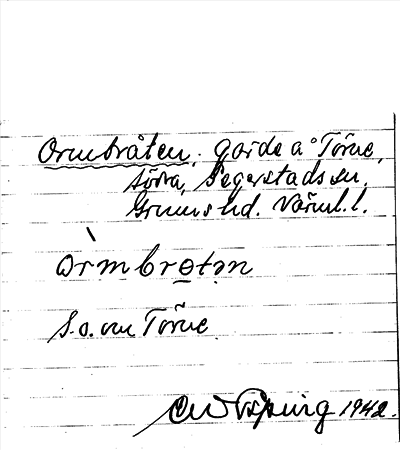 Ormbråten, gärde å Törne,
södra, Segerstads sn.
Grums hd. Värml. l.
òrmbrøtən
S.o. om Törne
1942.